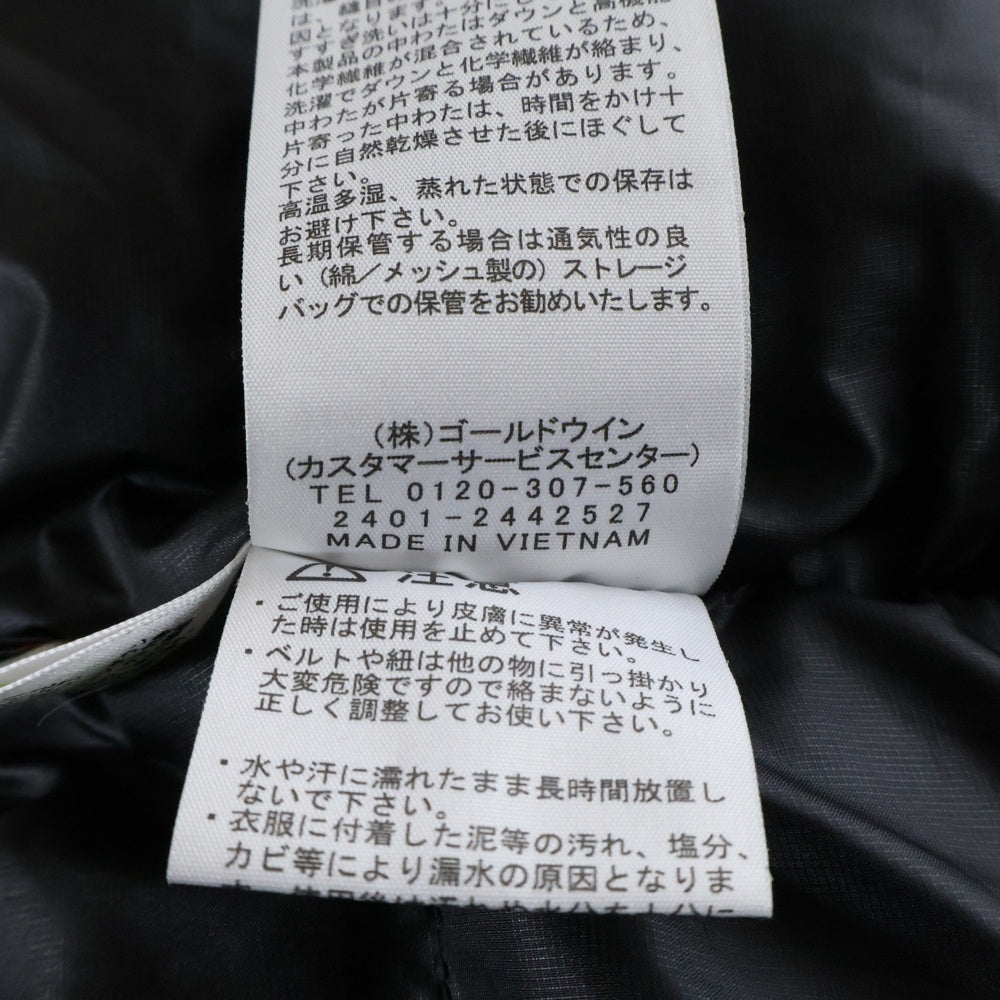 は、縫目
因となります。
すすぎ洗いは十分に
本製品の中わたはダウンと高機能
化学繊維が混合されているため、
洗濯でダウンと化学繊維が絡まり、
中わたが片寄る場合があります。
片寄った中わたは、時間をかけ十
分に自然乾燥させた後にほぐして
下さい。
高温多湿、蒸れた状態での保存は
お避け下さい。
長期保管する場合は通気性の良
い(綿/メッシュ製の)ストレージ
バッグでの保管をお勧めいたします。
(株)ゴールドウイン
(カスタマーサービスセンター)
TEL 0120-307-560
2401-2442527
MADE IN VIETNAM
注意
・ご使用により皮膚に異常が発生し
た時は使用を止めて下さい。
・ベルトや紐は他の物に引っ掛かり
大変危険ですので絡まないように
正しく調整してお使い下さい。
・水や汗に濡れたまま長時間放置し
ないで下さい。
・衣服に付着した泥等の汚れ、塩分、
カビ等により漏水の原因となりま
す。使用後は汚れや水分を十分に